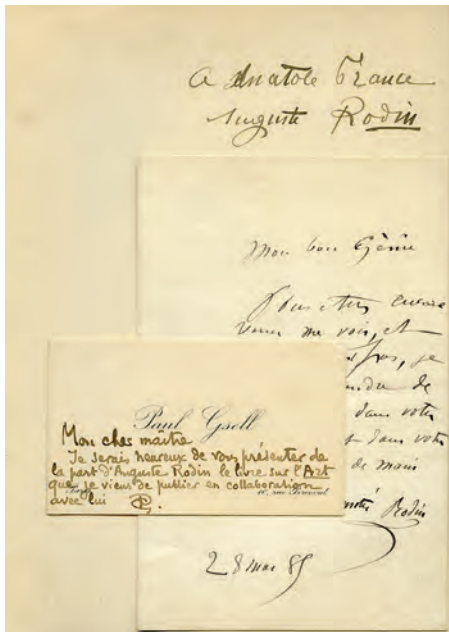 A Anatole France
Auguste Rodin
Mon bon Génie
Vous êtes encore
venu me voir, et
pas, je
de
dans votre
dans votre
de main
Rodin
28 mai 85
Paul Gsell
Mon cher maître
Je serais heureux de vous présenter de
la part d'Auguste Rodin le livre sur l'Art
que je viens de publier en collaboration
avec lui PG.
Paris
10, rue